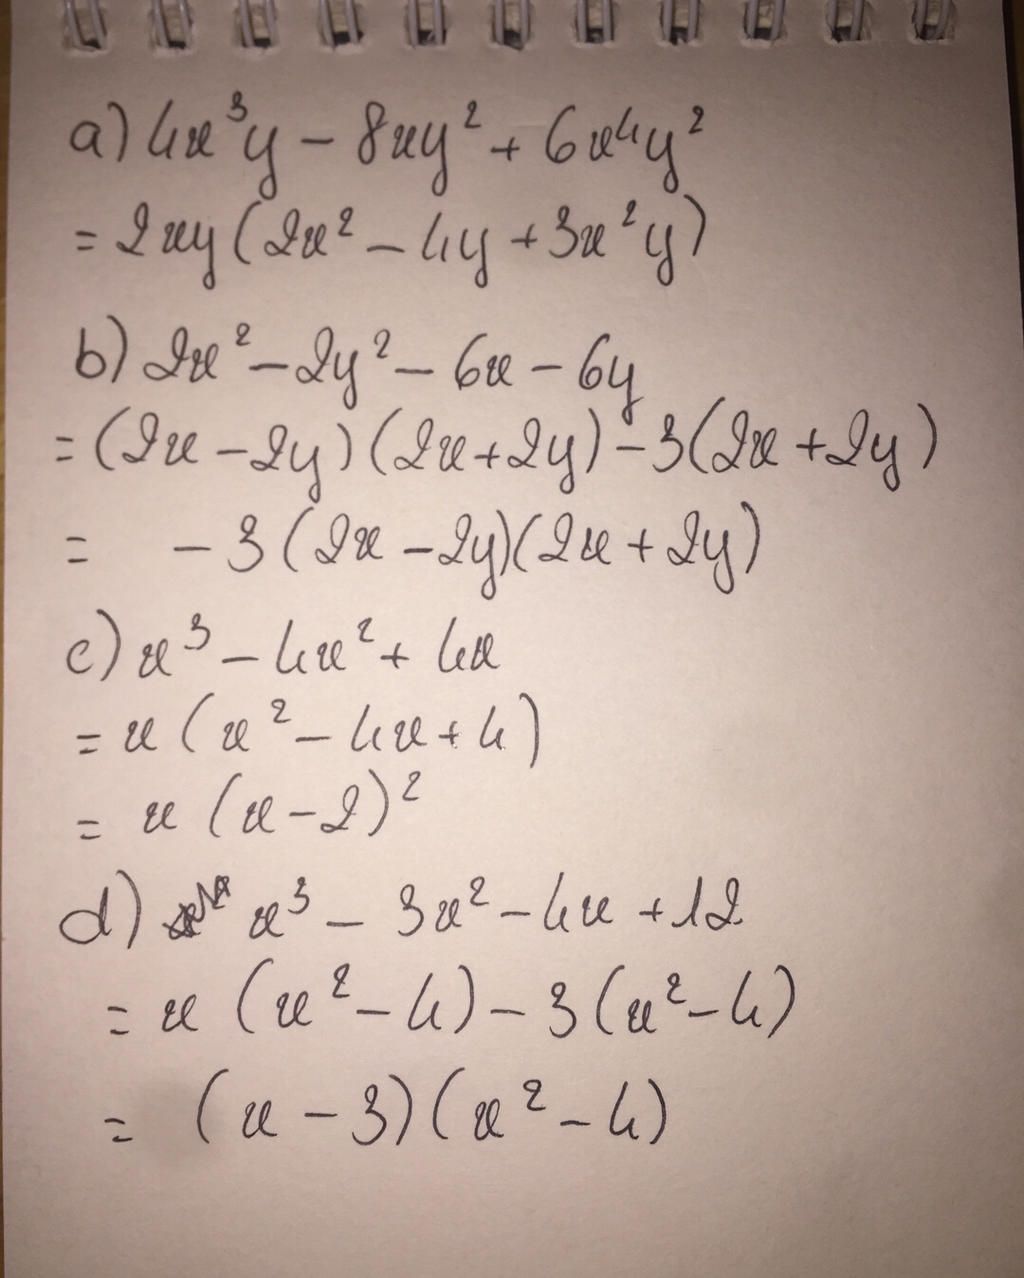 a) 4x³y - 8xy² + 6x⁴y²
= 2xy(2x² - 4y + 3x²y)
b) 2x² - 2y² - 6x - 6y
= (2x - 2y)(2x + 2y) - 3(2x + 2y)
= - 3(2x - 2y)(2x + 2y)
c) x³ - 4x² + 4x
= x(x² - 4x + 4)
= x(x - 2)²
d) x³ - 3x² - 4x + 12
= x(x² - 4) - 3(x² - 4)
= (x - 3)(x² - 4)